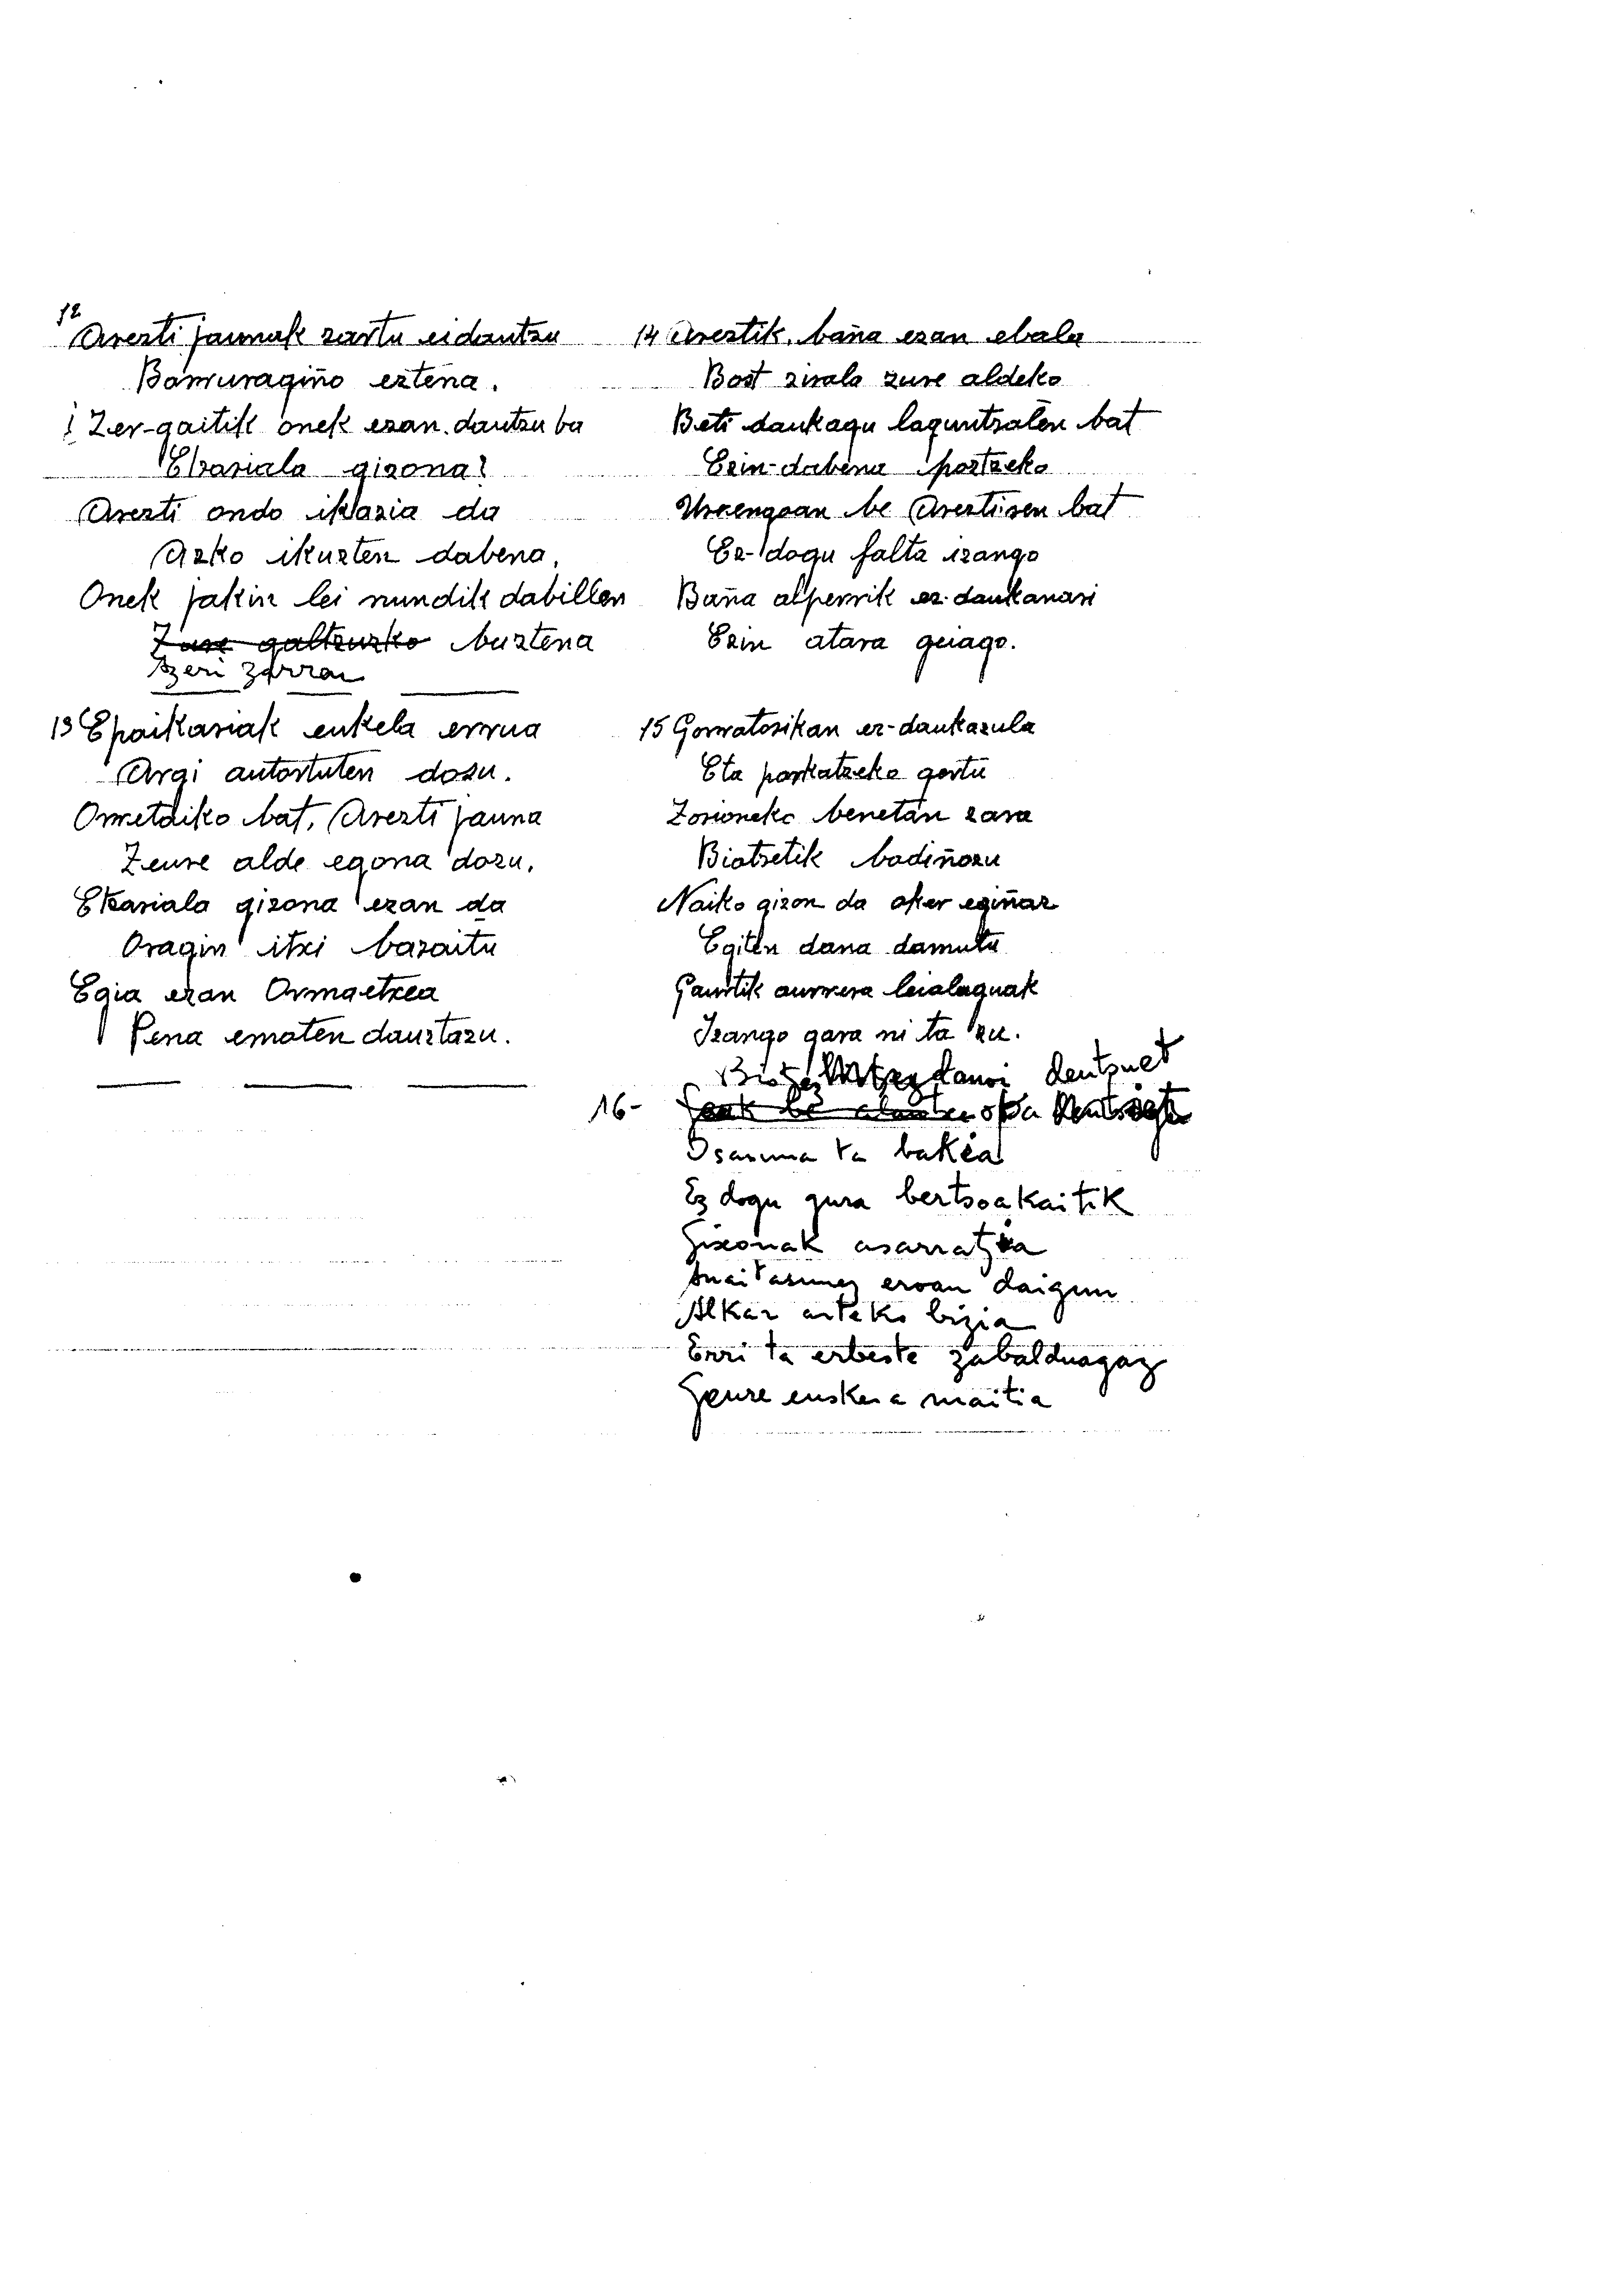 12
Arezti jaunak zartu eidautzu
Barruragiño eztena.
¿Zer-gaitik onek ezan dautzu ba
Etzariala gizona?
Arezti ondo ikazia da
Azko ikuzten dabena,
Onek jakin lei nundik dabillen
Zure galtzuzko buztena
Azeri zarran
13 Epaikariak eukela errua
Argi autortuten dozu.
Orretaiko bat, Arezti jauna
Zeure alde egona dozu,
Etzariala gizona ezan da
Oragin itxi bazaitu
Egia ezan Ormaetxea
Pena ematen dauztazu.
14 Areztik, baña ezan ebala
Bost zirala zure aldeko
Beti daukagu laguntzalen bat
Ezin-dabena portzeko
Urrengoan be Areztiren bat
Ez-dogu falta izango
Baña alperrik ez-daukanari
Ezin atara geiago.
15 Gorratorikan ez-daukazula
Eta parkatzeko gertu
Zorioneko benetan zara
Biotzetik badiñozu
Naiko gizon da oker egiñaz
Egiten dana damutu
Gaurtik aurrera leialaguak
Izango gara ni ta zu.
danoi deutzuet
16- opa
Osasuna ta bakea
Ez dogu gura bertsoakaitik
Gixonak asarratzia
Anaitasunez eroan daigun
Alkar arteko bizia
Erri ta erbeste zabalduagaz
Geure euskera maitia